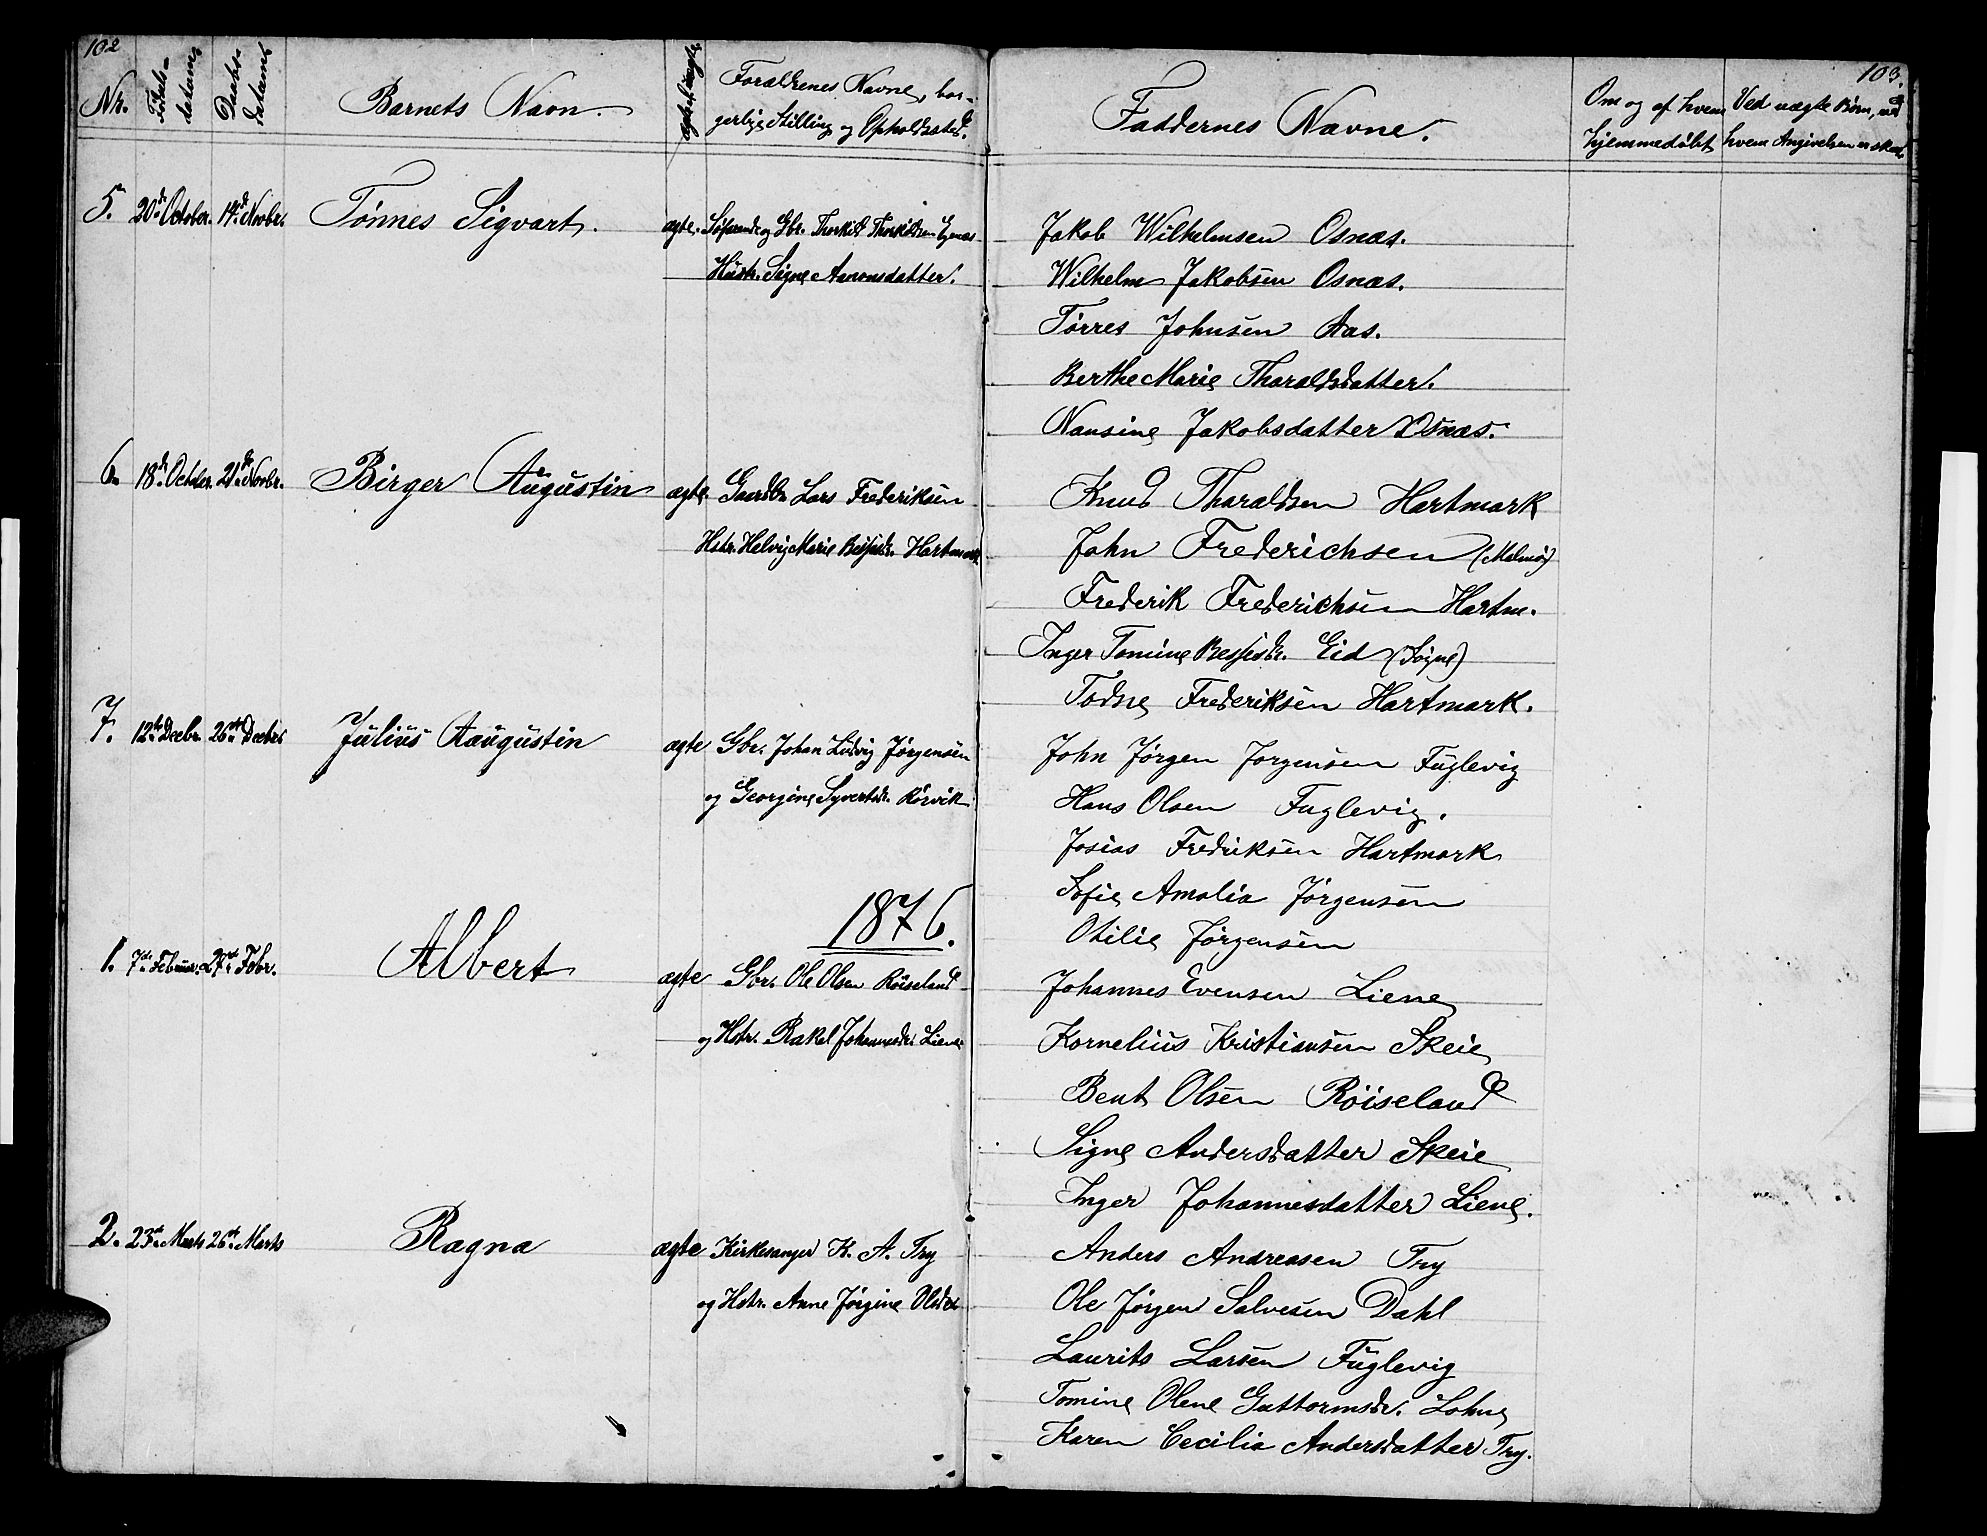 102
Nr.
Fødsels-
datum
Daabs-
datum
Barnets Navn.
ægte el. uægte
Forældrenes Navne, bor-
gerlige Stilling og Opholdssted.
5. 20de October. 14de Novbr. Tønnes Sigvart. ægte. Søfarende og Gbr. Thorkild Thorkildsen
Hustr. Signe Aanonsdatter.
6. 18de October. 21de Novbr. Birger Augustin ægte. Gaardbr. Lars Frederiksen
Hstr. Helvig Marie Bessesdr. Hartmark
7. 12te Decbr. 26de Decbr. Julius Aaugustin ægte Gbr. Johan Ludvig Jørgensen
og Georgine Syvertsdr. Rørvik
1876.
1. 7de Februar. 27de Febr. Albert ægte Gbr. Ole Olsen Røiseland
og Hstr. Rakel Johannesdr. Liene
2. 23de Marts 26de Marts Ragna ægte Kirkesanger K. A. Try
og Hstr. Anne Jørgine Olsdtr
103.
Faddernes Navne.
Om og af hvem
hjemmedøbt
Ved uægte Børn, ved
hvem Angivelsen er skeet.
Jakob Wilhelmsen Osnæs.
Wilhelm Jakobsen Osnæs.
Tørres Johnsen Aas.
Berthe Marie Tharaldsdatter.
Nansine Jakobsdatter Osnæs.
Knud Tharaldsen Hartmark
John Frederichsen (Malmø)
Frederik Frederichsen Hartm.
Inger Tomine Bessesdr. Eid (Søgne)
Todne Frederiksen Hartmark.
John Jørgen Jorgensen Fuglevig
Hans Olsen Fuglevig.
Josias Fredriksen Hartmark
Sofie Amalia Jørgensen
Otilie Jørgensen
Johannes Evensen Liene
Kornelius Kristiansen Skeie
Bent Olsen Röiseland
Signe Andersdatter Skeie
Inger Johannesdatter Liene.
Anders Andreasen Try
Ole Jørgen Salvesen Dahl
Laurits Larsen Fuglevig
Tomine Olene Guttormsdr. Lohne
Karen Cecilia Andersdatter Try.